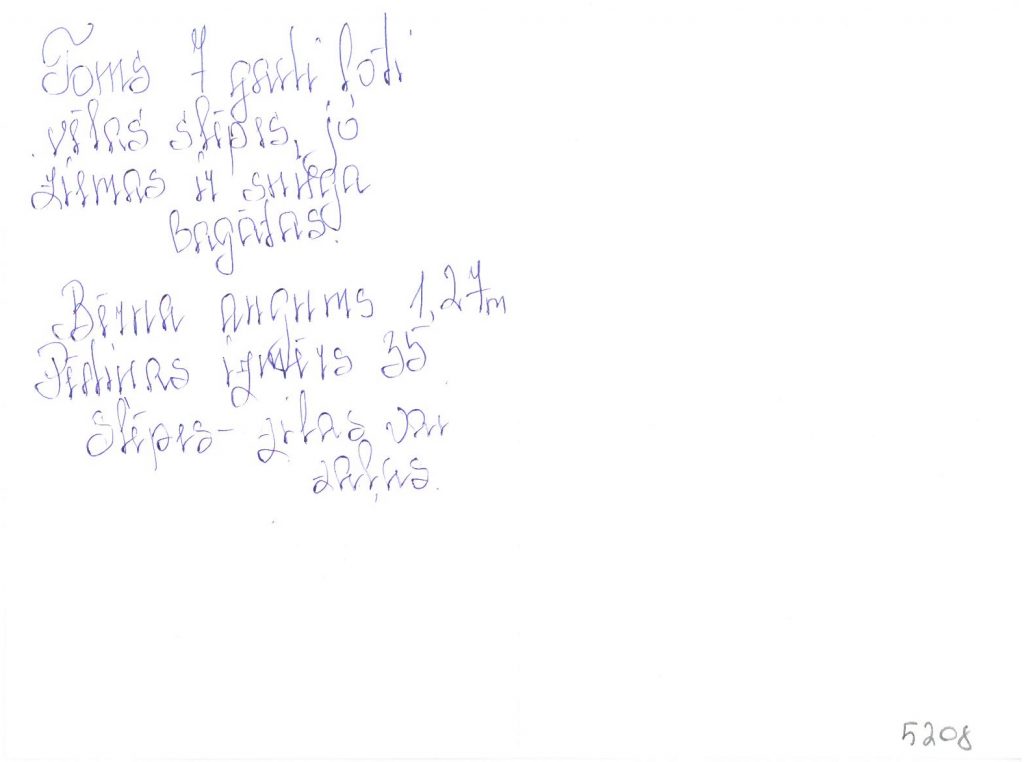 Toms 7 gadi ļoti
vēlas slēpes, jo
ziemas ir sniega
bagātas.
Bērna augums 1,27m
Pēdiņas izmērs 35
Slēpes - zilas vai
zaļas.
5208